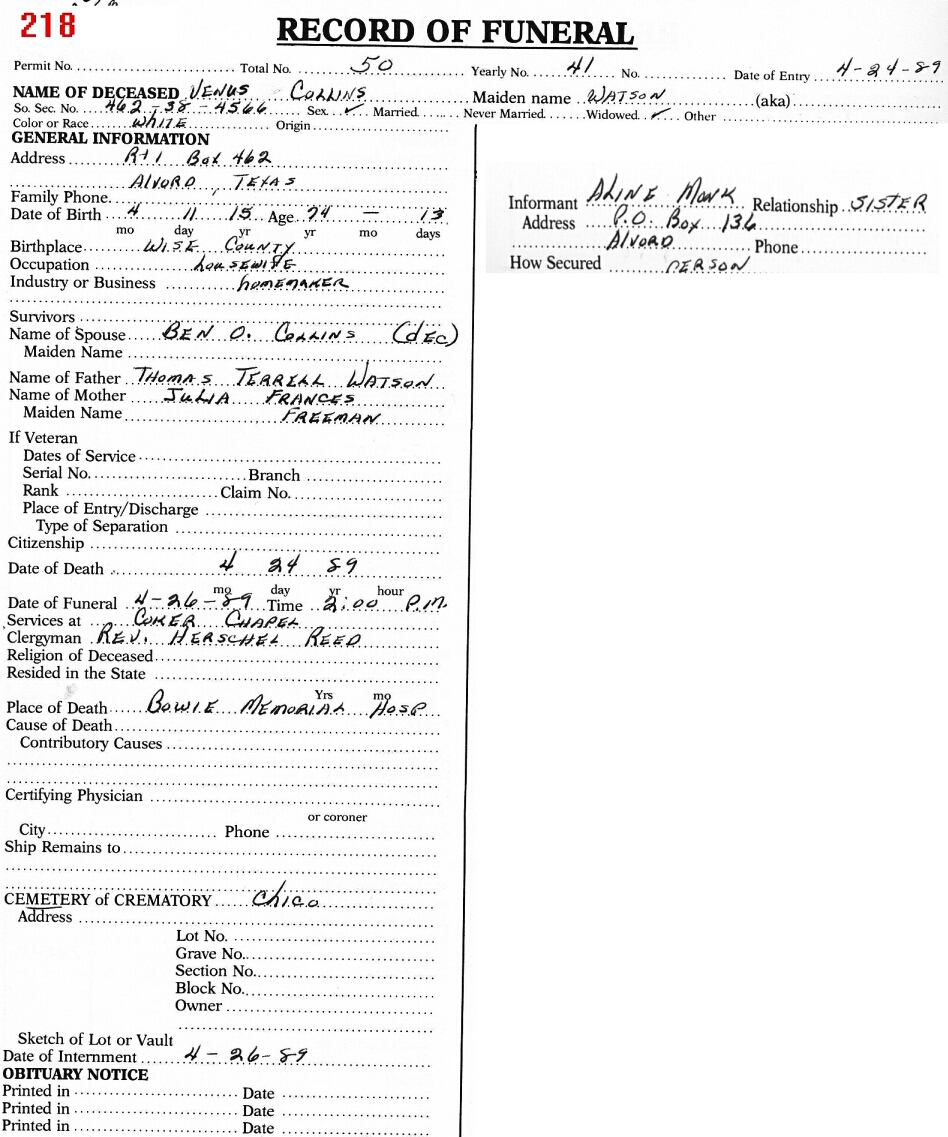 218
RECORD OF FUNERAL
Permit No. Total No. 50 Yearly No. 41 No. Date of Entry 4-24-89
NAME OF DECEASED VENUS COLLINS Maiden name WATSON (aka)
So. Sec. No. 462-38-4566 Sex ✓ Married Never Married Widowed ✓ Other
Color or Race WHITE Origin
GENERAL INFORMATION
Address Rt 1 Box 462
ALVORD, TEXAS
Family Phone
Date of Birth 4 11 15 Age 74 — 13
mo day yr yr mo days
Birthplace WISE COUNTY
Occupation HOUSEWIFE
Industry or Business HOMEMAKER
Survivors
Name of Spouse BEN O. COLLINS (dEC)
Maiden Name
Name of Father THOMAS TERRELL WATSON
Name of Mother JULIA FRANCES
Maiden Name FREEMAN
If Veteran
Dates of Service
Serial No. Branch
Rank Claim No.
Place of Entry/Discharge
Type of Separation
Citizenship
Date of Death 4 24 89
mo day yr hour
Date of Funeral 4-26-89 Time 2:00 P.M.
Services at COKER CHAPEL
Clergyman REV. HERSCHEL REED
Religion of Deceased
Resided in the State
Yrs mo
Place of Death BOWIE MEMORIAL HOSP
Cause of Death
Contributory Causes
Certifying Physician
or coroner
City Phone
Ship Remains to
CEMETERY of CREMATORY Chico
Address
Lot No.
Grave No.
Section No.
Block No.
Owner
Sketch of Lot or Vault
Date of Internment 4-26-89
OBITUARY NOTICE
Printed in Date
Printed in Date
Printed in Date
Informant ALINE MONK Relationship SISTER
Address P.O. Box 136
ALVORD Phone
How Secured PERSON